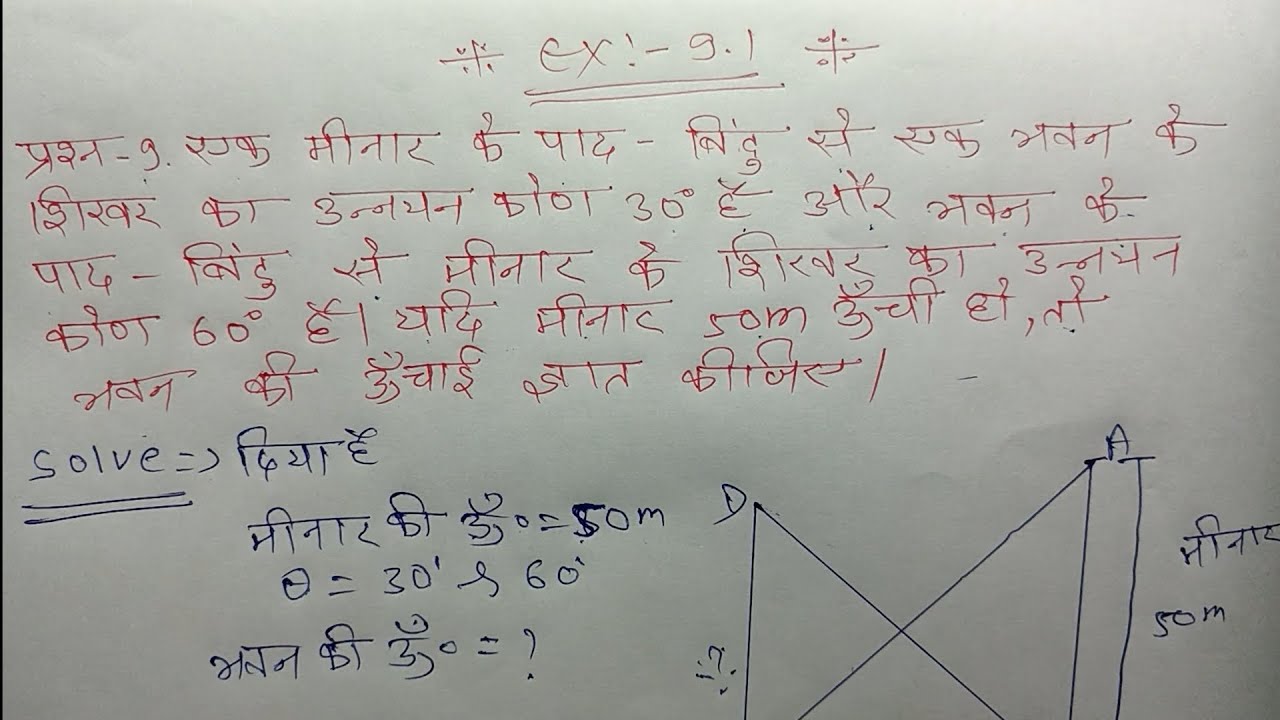 ex:- 9.1
प्रश्न-9. एक मीनार के पाद-बिंदु से एक भवन के
शिखर का उन्नयन कोण 30° है और भवन के
पाद-बिंदु से मीनार के शिखर का उन्नयन
कोण 60° है। यदि मीनार 50m ऊँची हो, तो
भवन की ऊँचाई ज्ञात कीजिए।
Solve => दिया है
मीनार की ऊँ० = 50m
θ = 30° & 60°
भवन की ऊँ० = ?
A
D
मीनार
50m
?